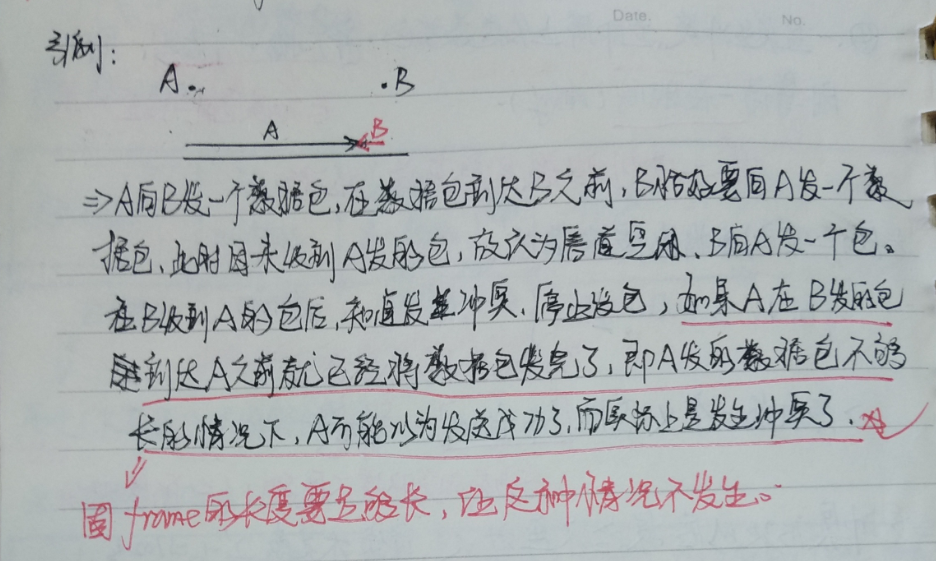 Date. No.
引例:
A. .B
A B
⇒A向B发一个数据包,在数据包到达B之前,B恰好要向A发一个数
据包,此时因未收到A发的包,故认为信道空闲、B向A发一个包。
在B收到A的包后,知道发生冲突,停止发包,如果A在B发的包
到达A之前就已经将数据包发完了,即A发的数据包不够
长的情况下,A可能以为发送成功了,而实际上是发生冲突了.
frame的长度要足够长,让这种情况不发生。